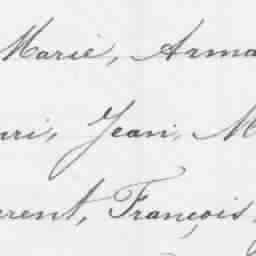 Marie, Arma
uri, Jean, M
erent, François,